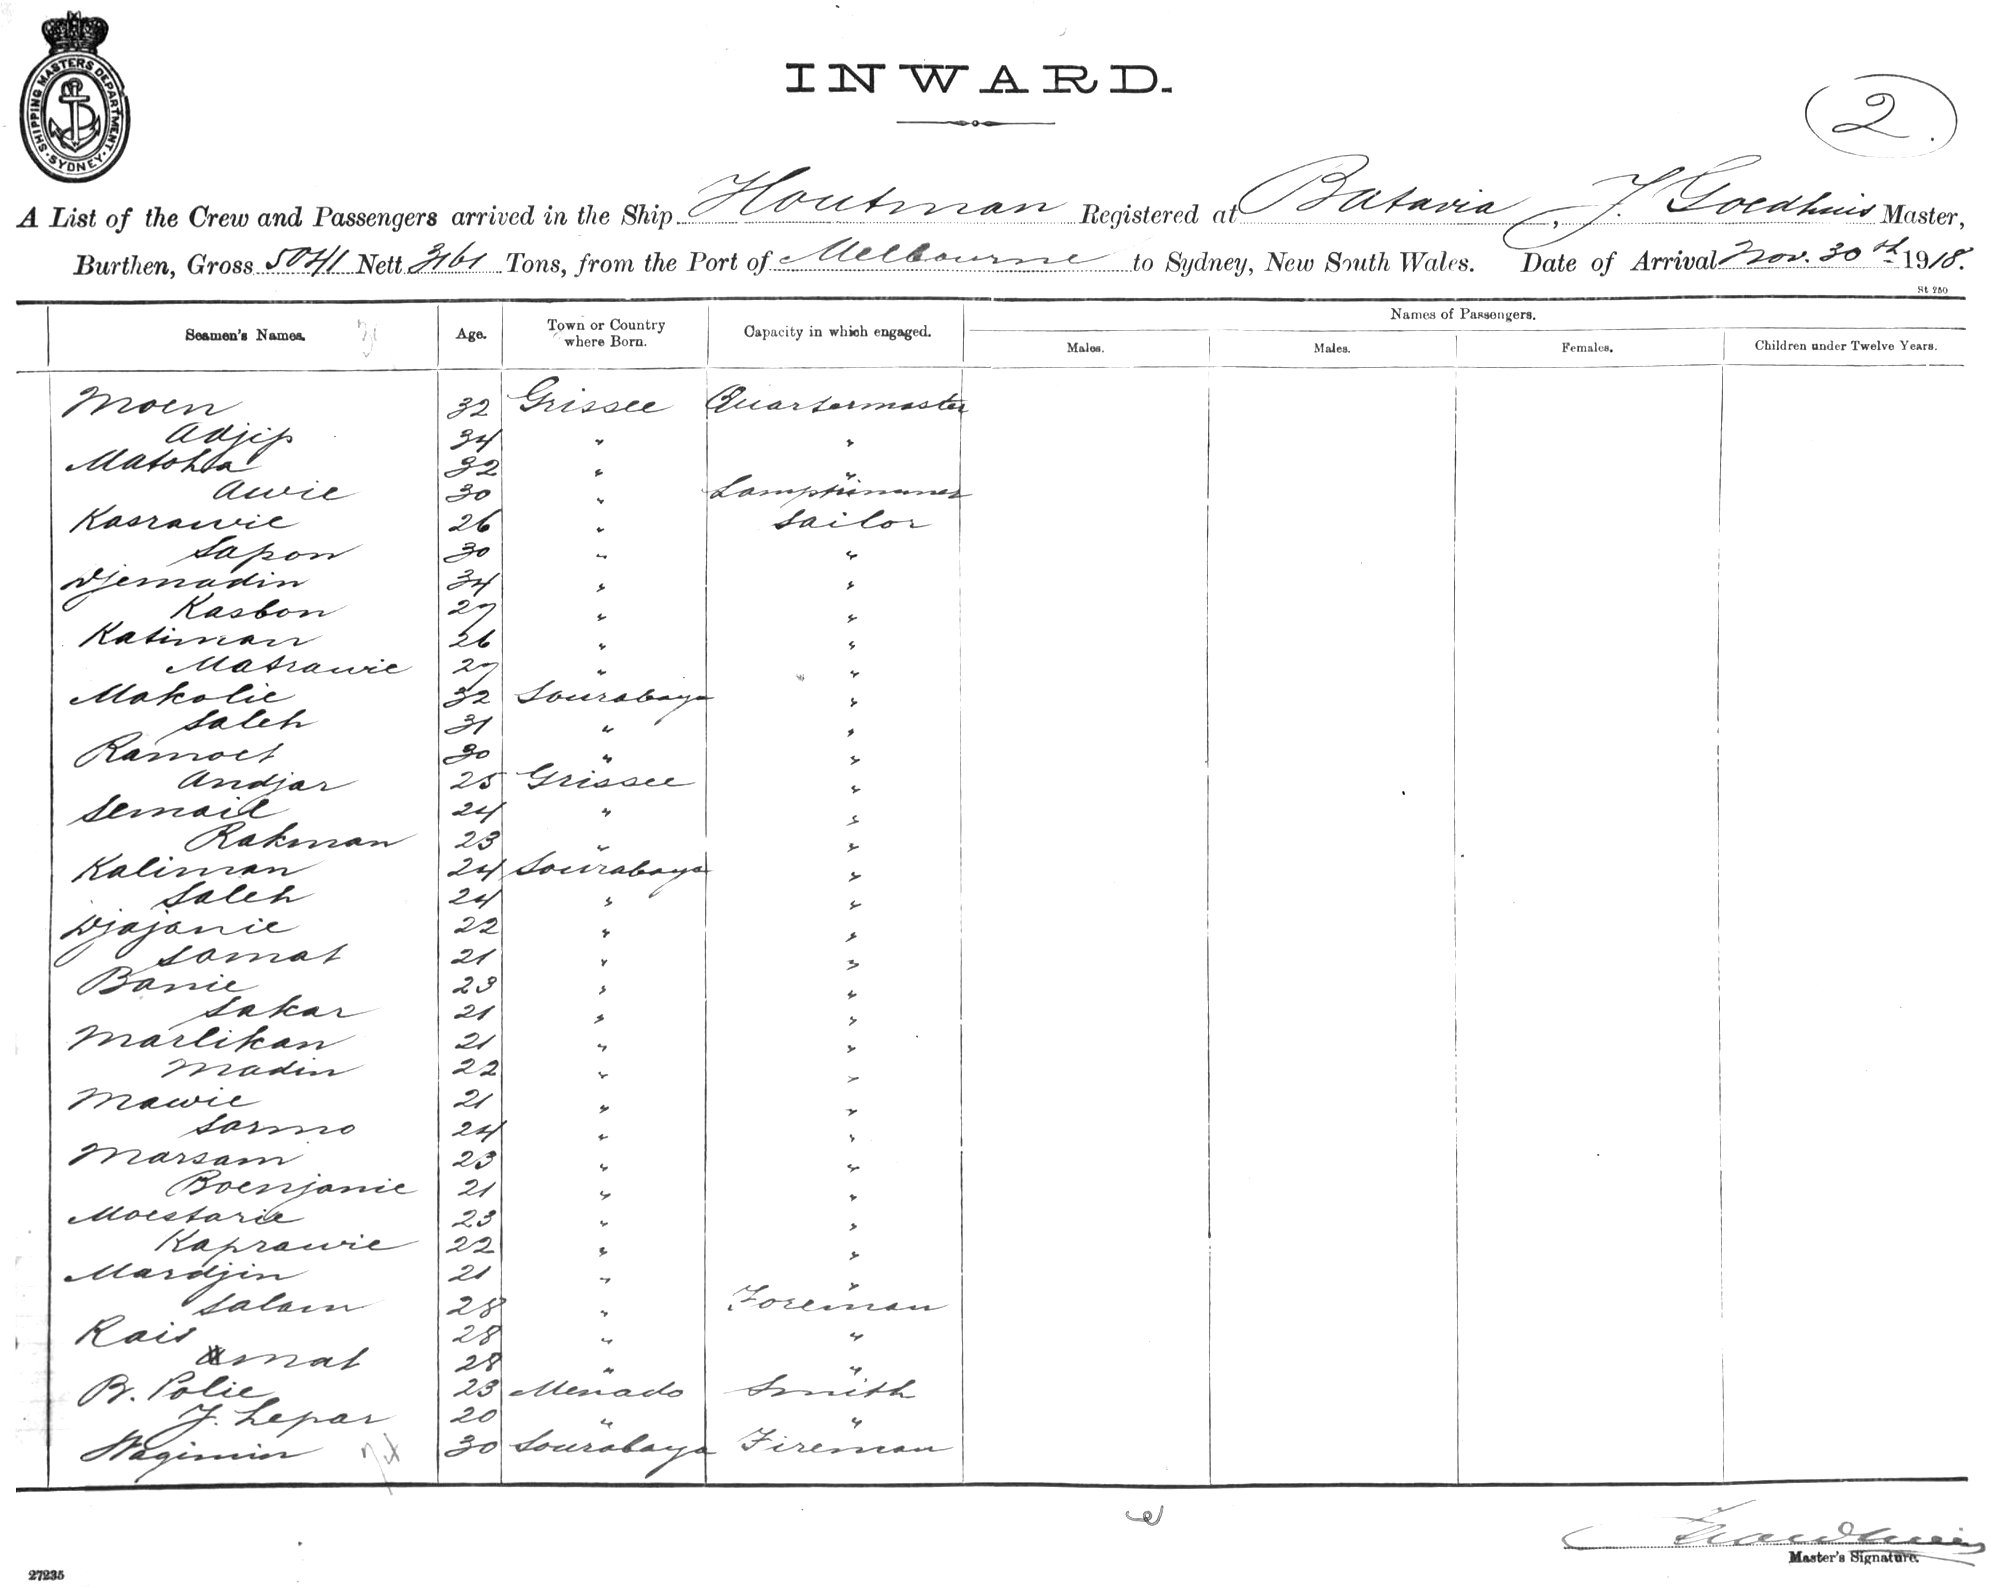 SHIPPING MASTERS DEPARTMENT · SYDNEY ·
INWARD.
2.
A List of the Crew and Passengers arrived in the Ship Houtman Registered at Batavia, J. Goedhuis Master,
Burthen, Gross 5041 Nett 3161 Tons, from the Port of Melbourne to Sydney, New South Wales. Date of Arrival Nov. 30th 1918.
St 250
Seamen's Names. Age. Town or Country where Born. Capacity in which engaged. Names of Passengers.
Males. Males. Females. Children under Twelve Years.
Moen 32 Grissee Quartermaster
Adjip 34 " "
Matohla 32 " "
Awie 30 " Lamptrimmer
Kasrawie 26 " Sailor
Sapon 30 " "
Djemadin 34 " "
Kasbon 27 " "
Katiman 26 " "
Matrawie 27 " "
Makolie 32 Sourabaya "
Saleh 31 " "
Ramoet 30 " "
Andjar 25 Grissee "
Semail 24 " "
Rakman 23 " "
Kaliman 24 Sourabaya "
Saleh 24 " "
Djajanie 22 " "
Samat 21 " "
Banie 23 " "
Sakar 21 " "
Marlikan 21 " "
Madin 22 " "
Mawie 21 " "
Sarmo 24 " "
Marsam 23 " "
Boenjanie 21 " "
Moestarie 23 " "
Kaprawie 22 " "
Mardjin 21 " "
Salam 28 " Foreman
Rais 28 " "
Amat 28 " "
Br. Polie 23 Menado Smith
J. Lepar 20 " "
Wagimin 30 Sourabaya Fireman
Master's Signature.
27235